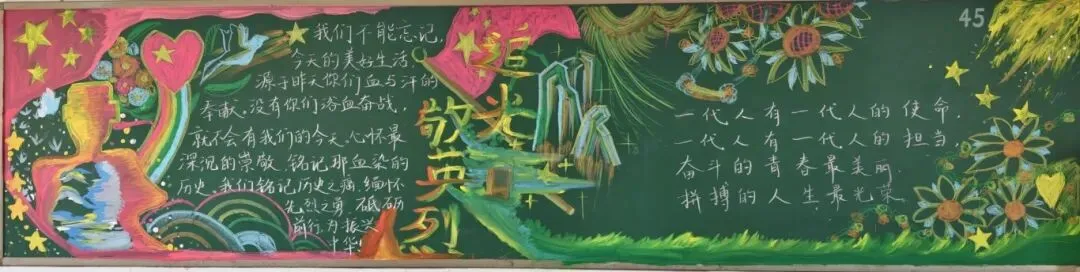 我们不能忘记,
今天的美好生活
源于昨天你们血与汗的
奉献,没有你们浴血奋战,
就不会有我们的今天。心怀最
深沉的崇敬 铭记那血染的
历史。我们铭记历史之痛,缅怀
先烈之勇 砥砺
前行,为振兴
中华!
追光
敬英烈
45
一代人有一代人的使命,
一代人有一代人的担当
奋斗的青春最美丽.
拼搏的人生最光荣